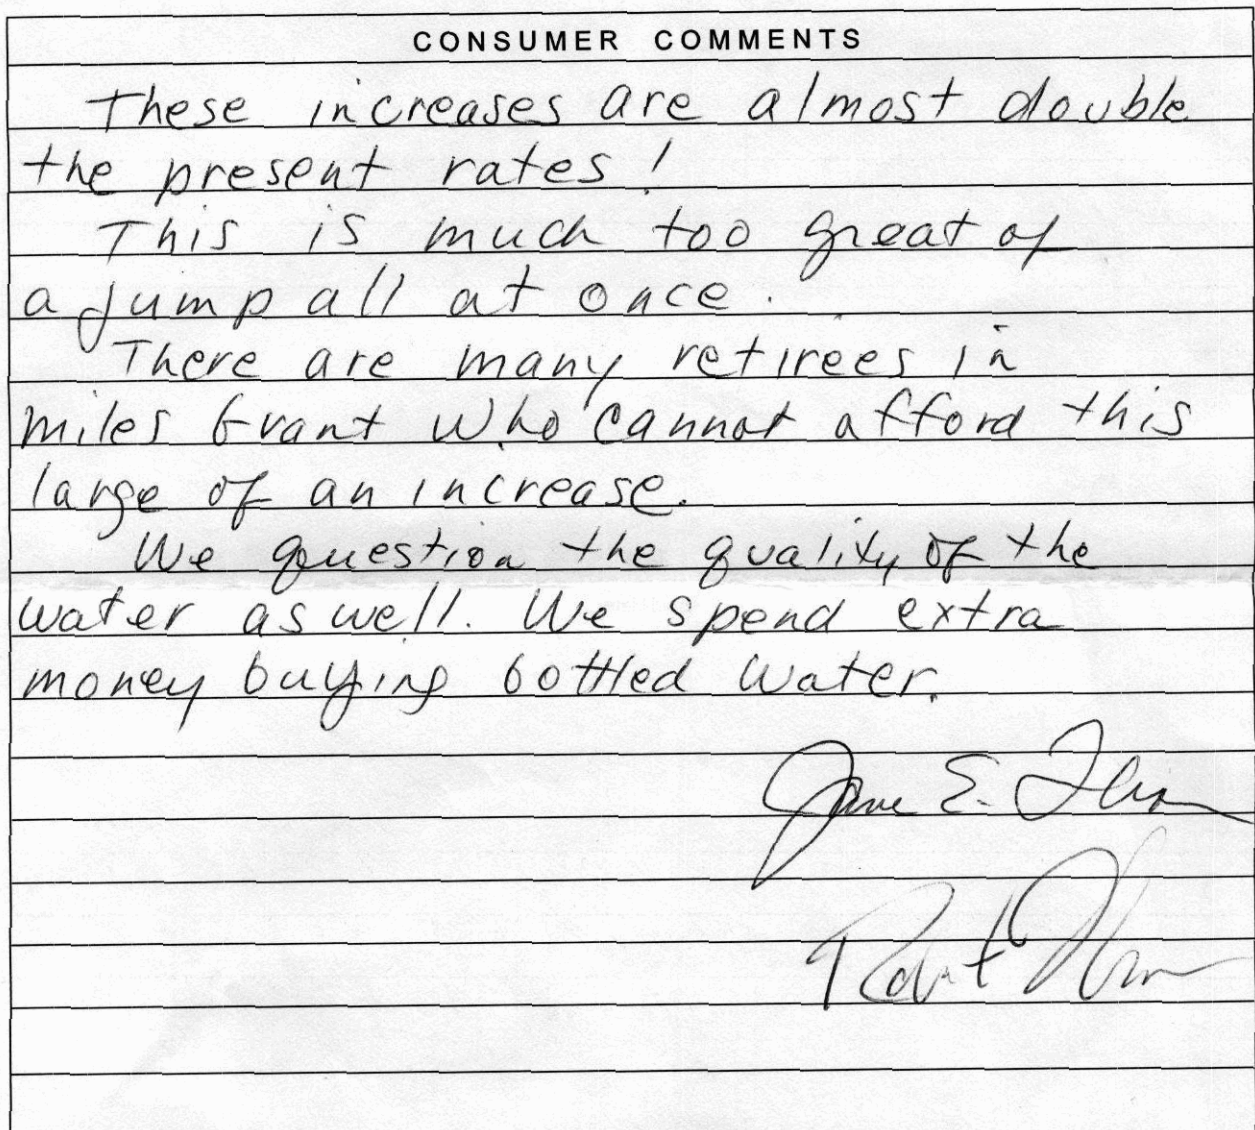 CONSUMER COMMENTS
These increases are almost double
the present rates!
This is much too great of
a jump all at once.
There are many retirees in
miles Grant who cannot afford this
large of an increase.
We question the quality of the
water as well. We spend extra
money buying bottled water.
Jane E.
Robert